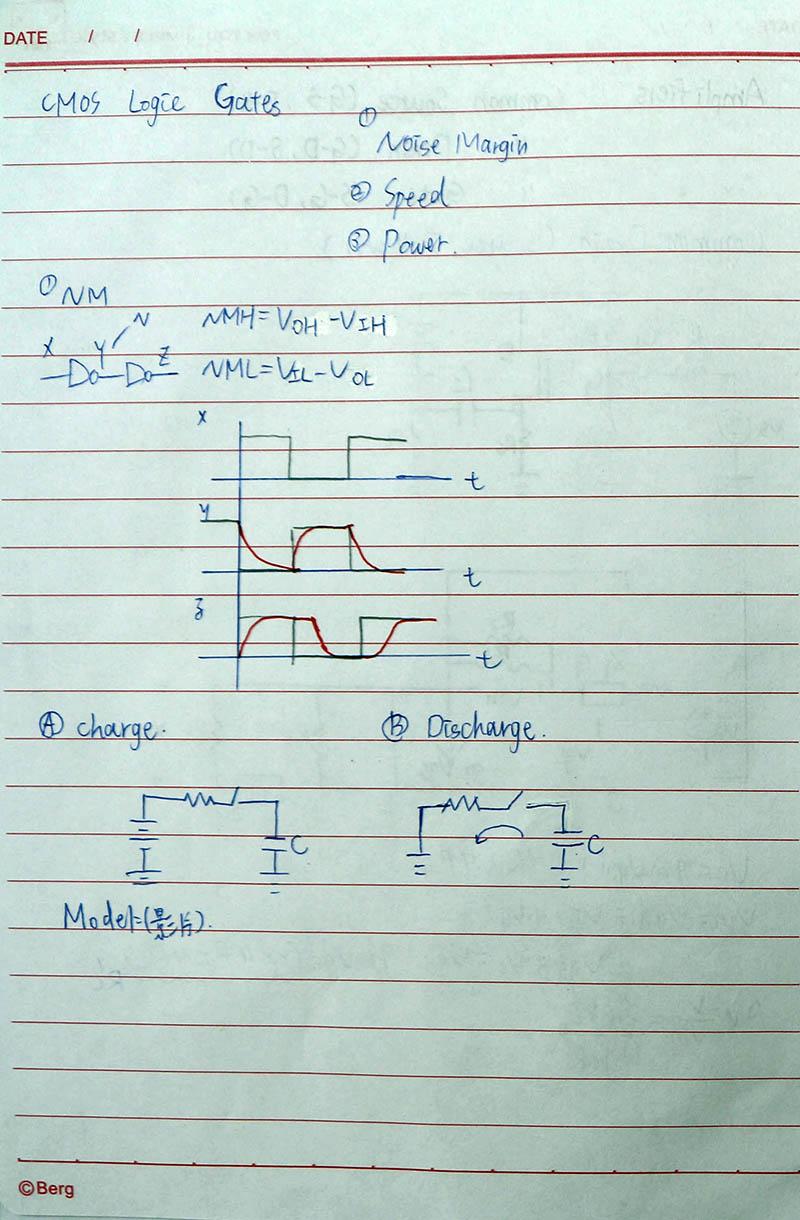 DATE / /
CMOS Logic Gates
① Noise Margin
② Speed
③ Power.
① NM
N
X Y Z
NMH = VOH - VIH
NML = VIL - VOL
X
t
y
t
z
t
Ⓐ charge.
Ⓑ Discharge.
C
C
Model=(影片).
©Berg